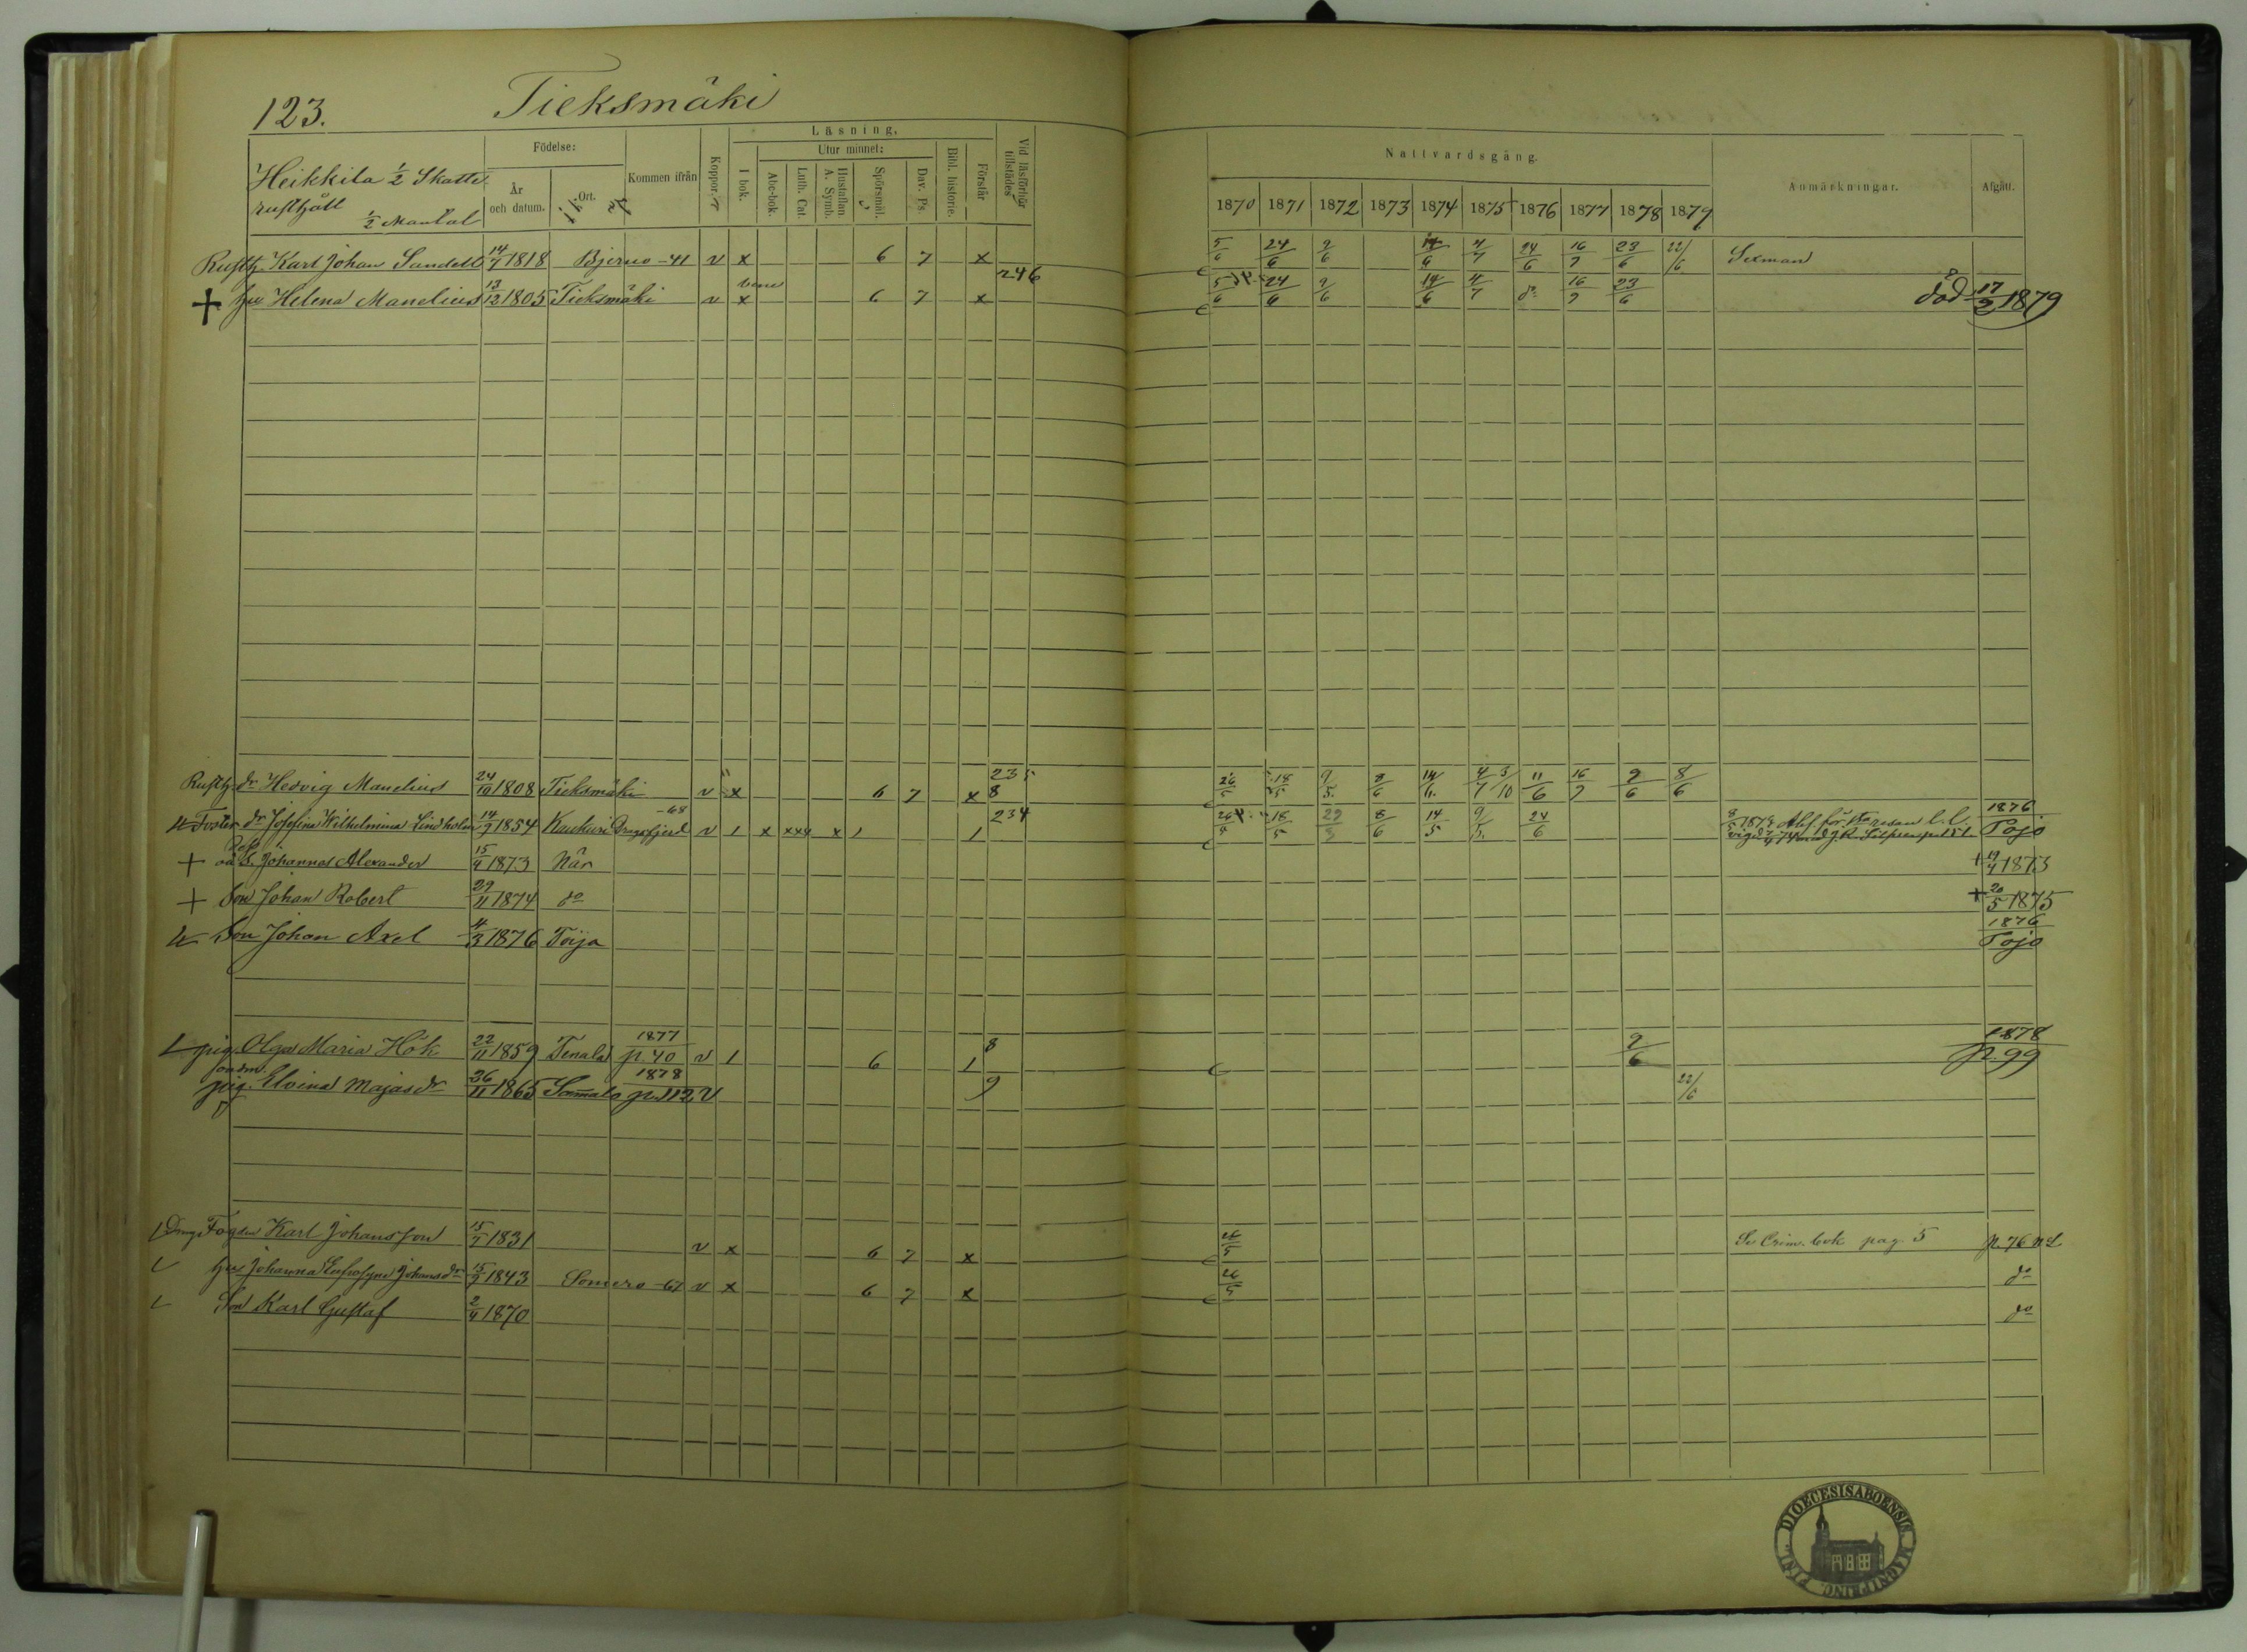 123.
Tieksmäki
Heikkila 1/2 Skatte
rusthåll
1/2 Mantal
Födelse:
År och datum.
Ort.
Kommen ifrån
Koppor.
Läsning.
I bok.
Utur minnet:
Abc-bok.
Luth. Cat.
Hustaflan. A. Symb.
Spörsmål.
Dav. Ps.
Bibl. historie.
Förstår
Vid läsförhör tillstädes
Nattvardsgång.
1870 1871 1872 1873 1874 1875 1876 1877 1878 1879
Anmärkningar.
Afgått.
Rusth. Karl Johan Sandell 14/7 1818 Bjerno -41 v x 6 7 x 5/6 24/6 9/6 14/6 4/7 24/6 16/7 23/6 22/6 Sexman
246
+ hu Helena Manelius 13/12 1805 Tieksmäki v x 6 7 x 5/6 24/6 9/6 14/6 4/7 do 16/7 23/6 död 17/2 1879
Rusth. dr Hedvig Manelius 24/10 1808 Tieksmäki v x 6 7 x 235 8 26/5 18/5 9/5 8/6 14/6 4/7 3/10 11/6 16/7 9/6 8/6
Foster dr Josefina Wilhelmina Lindholm 14/9 1854 Kaukuri -68 v 1 x xxx x 1 1 234 18/5 29/5 8/6 14/5 9/5 24/6 1876 Pojo
+ oä S. Johannes Alexander 15/4 1873 När + 19/4 1873
+ Son Johan Robert 29/11 1874 do + 20/5 1875
Son Johan Axel 4/3 1876 Toija 1876 Pojo
pig. Olga Maria Hök 22/11 1859 Tenala 1877 p. 40 v 1 6 1 8 9/6 1878 p. 99
pig. Elvina Majasdr 26/11 1865 1878 p. 112 v 9 22/6
Fogden Karl Johansson 15/7 1831 v x 6 7 x 26/5 Se Crim. bok pag. 5 p. 76
hu Johanna Eufrosyne Johansdr 15/9 1843 Somero -67 v x 6 7 x 26/5 do
Son Karl Gustaf 2/4 1870 do
DIOECESIS ABOENSIS. MAGNI PRINC. FINL.